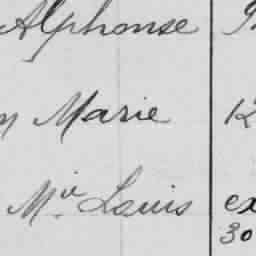 Alphonse
Marie 12
Mie Louis ex
30